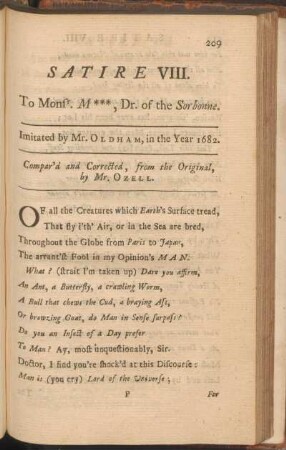 209
SATIRE VIII.
To Monsr. M***, Dr. of the Sorbonne.
Imitated by Mr. OLDHAM, in the Year 1682.
Compar'd and Corrected, from the Original,
by Mr. OZELL.
OF all the Creatures which Earth's Surface tread,
That fly i'th' Air, or in the Seas are bred,
Throughout the Globe from Paris to Japan,
The arrant'st Fool in my Opinion's MAN.
What? (strait I'm taken up) Dare you affirm,
An Ant, a Butterfly, a crawling Worm,
A Bull that chews the Cud, a braying Ass,
Or browzing Goat, do Man in Sense surpass?
Do you an Insect of a Day prefer
To Man? Ay, most unquestionably, Sir.
Doctor, I find you're shock'd at this Discourse:
Man is (you cry) Lord of the Universe;
P For